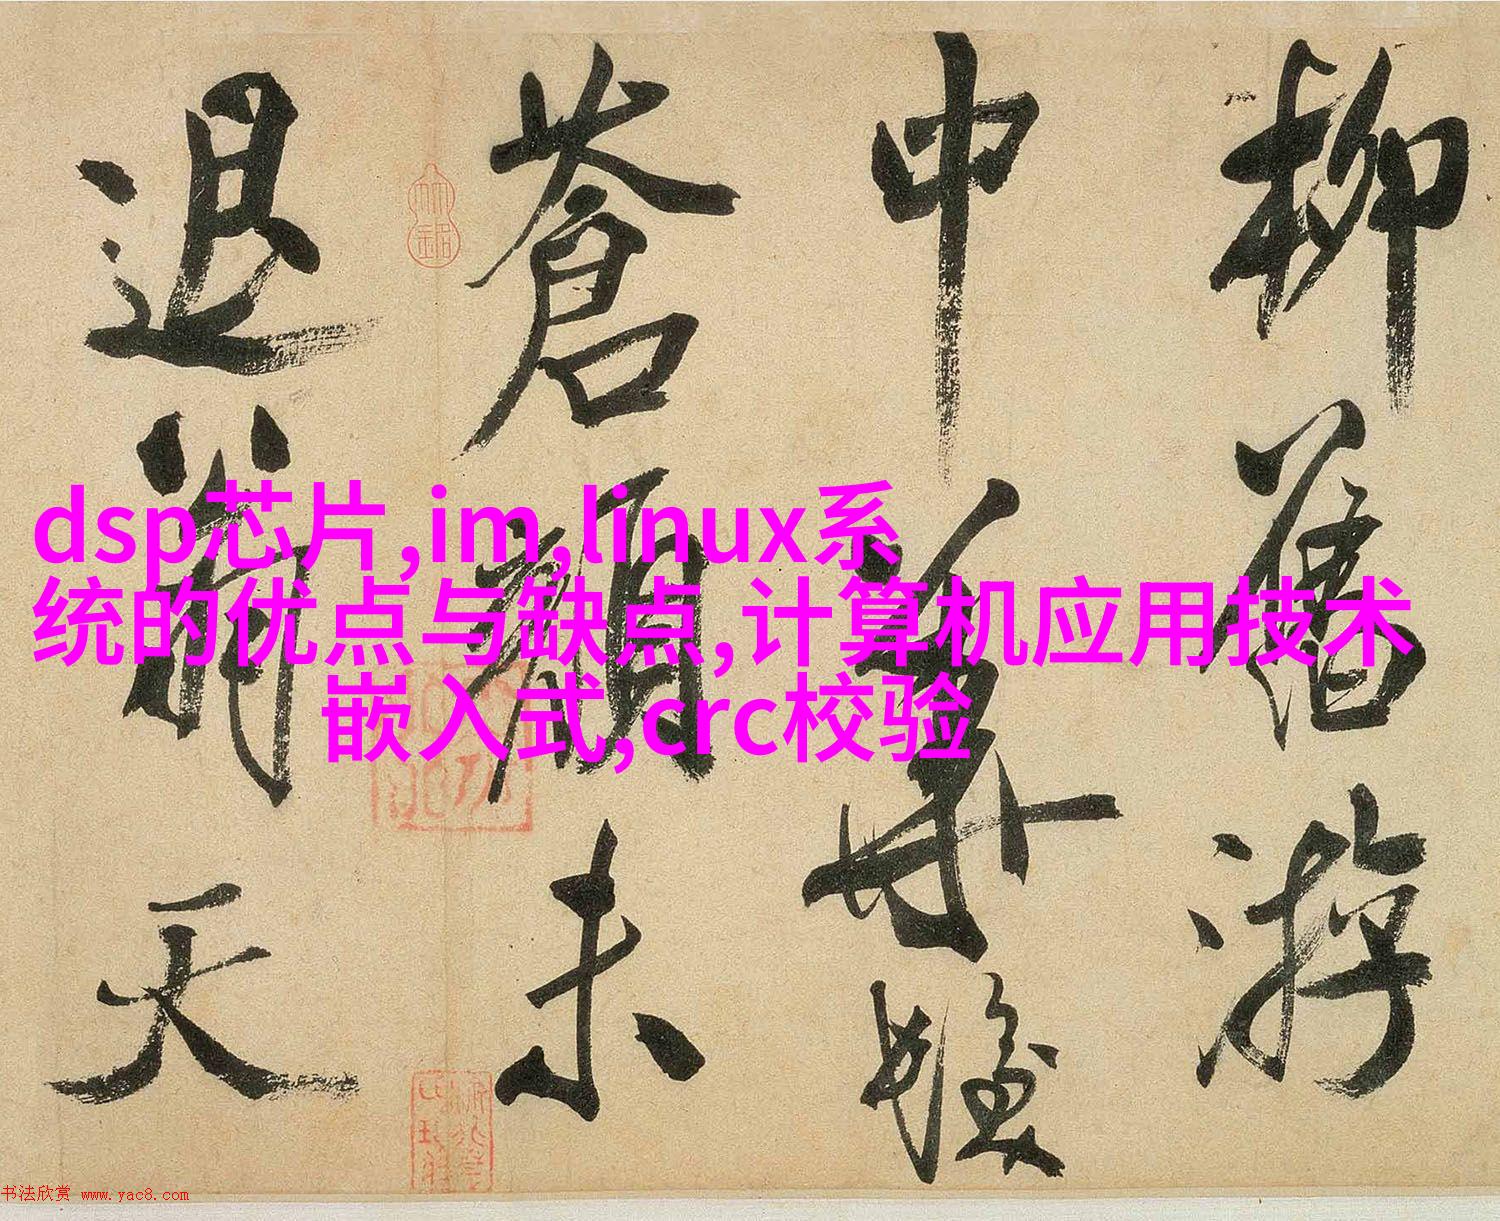 柳舊游
中華髮
蒼顏未
退天
dsp芯片,im,linux系
统的优点与缺点,计算机应用技术
嵌入式,crc校验
书法欣赏 www.yac8.com